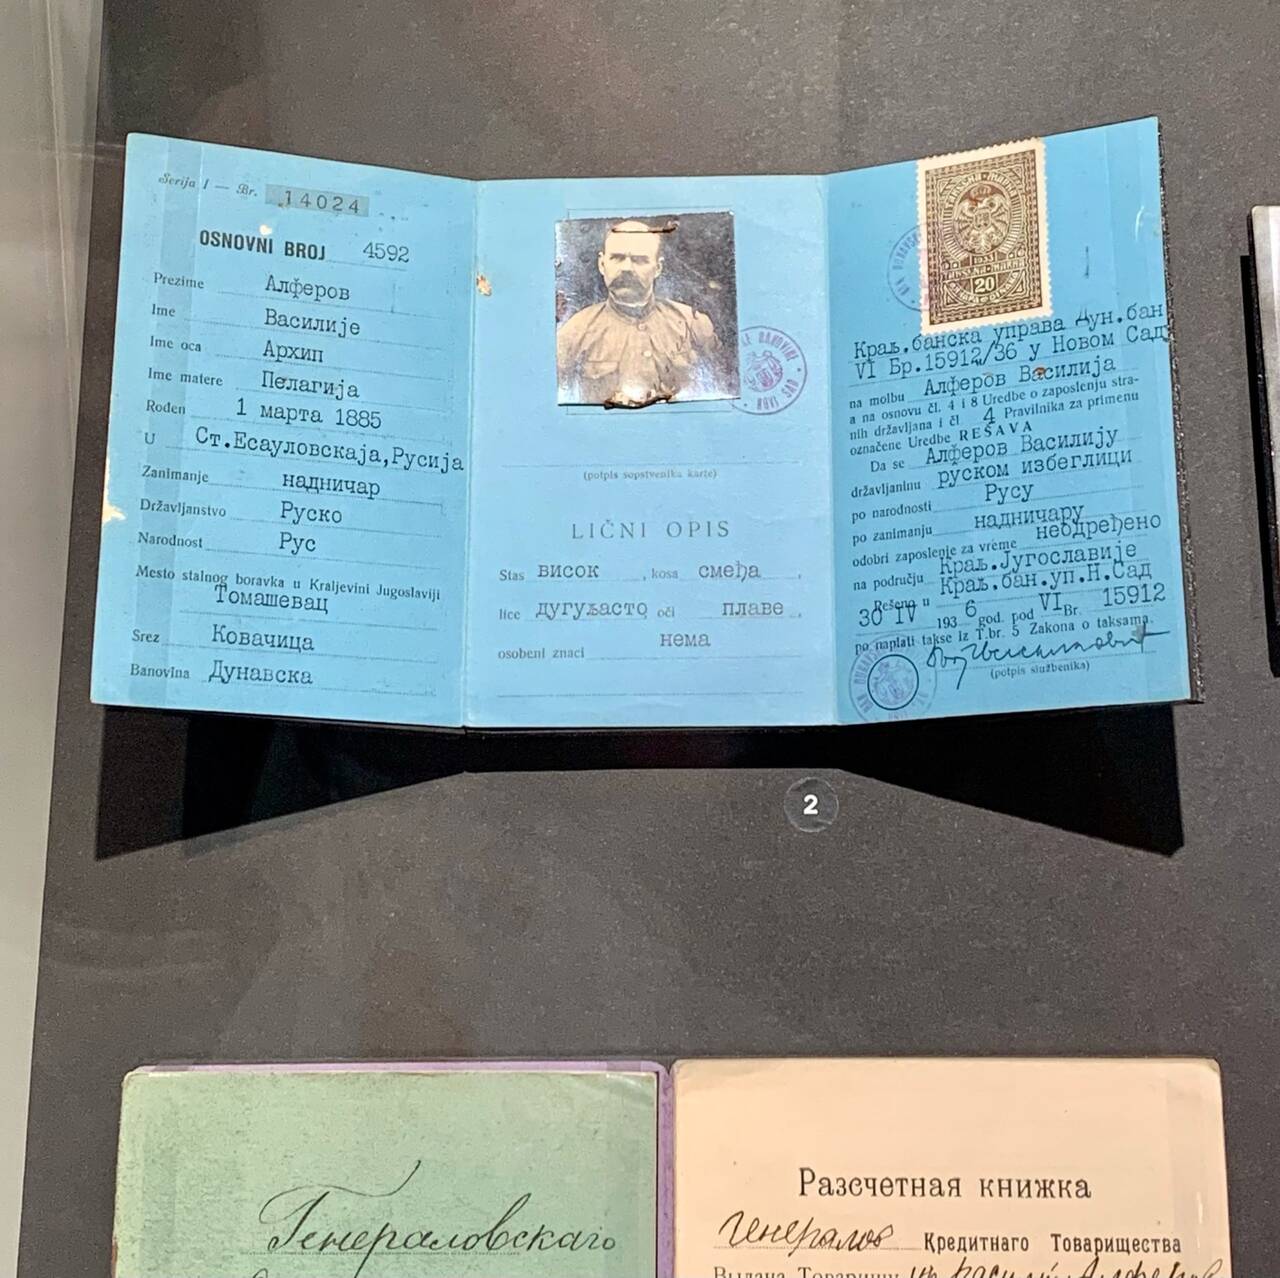 Serija I — Br. 14024
OSNOVNI BROJ 4592
Prezime Алферов
Ime Василије
Ime oca Архип
Ime matere Пелагија
Rođen 1 марта 1885
U Ст.Есауловскаја,Русија
Zanimanje надничар
Državljanstvo Руско
Narodnost Рус
Mesto stalnog boravka u Kraljevini Jugoslaviji
Томашевац
Srez Ковачица
Banovina Дунавска
NOVI SAD
(potpis sopstvenika karte)
LIČNI OPIS
Stas висок , kosa смеђа ,
lice дугуљасто oči плаве ,
нема
osobeni znaci
20
Краљ.банска управа Дун.бан
VI Бр.15912/36 у Новом Сад
na molbu Алферов Василија
a na osnovu čl. 4 i 8 Uredbe o zaposlenju stra-
nih državljana i čl 4 Pravilnika za primenu
označene Uredbe REŠAVA
Da se Алферов Василију
državljaninu руском избеглици
po narodnosti Русу
po zanimanju надничару
odobri zaposlenje za vreme неодређено
na području Краљ.Југославије
Rešeno u Краљ.бан.уп.Н.Сад
30 IV 1936 god. pod VI Br. 15912
po naplati takse iz T.br. 5 Zakona o taksama.
(potpis službenika)
2
Генераловскаго
Разсчетная книжка
Генералов Кредитнаго Товарищества
Выдана Товарищу